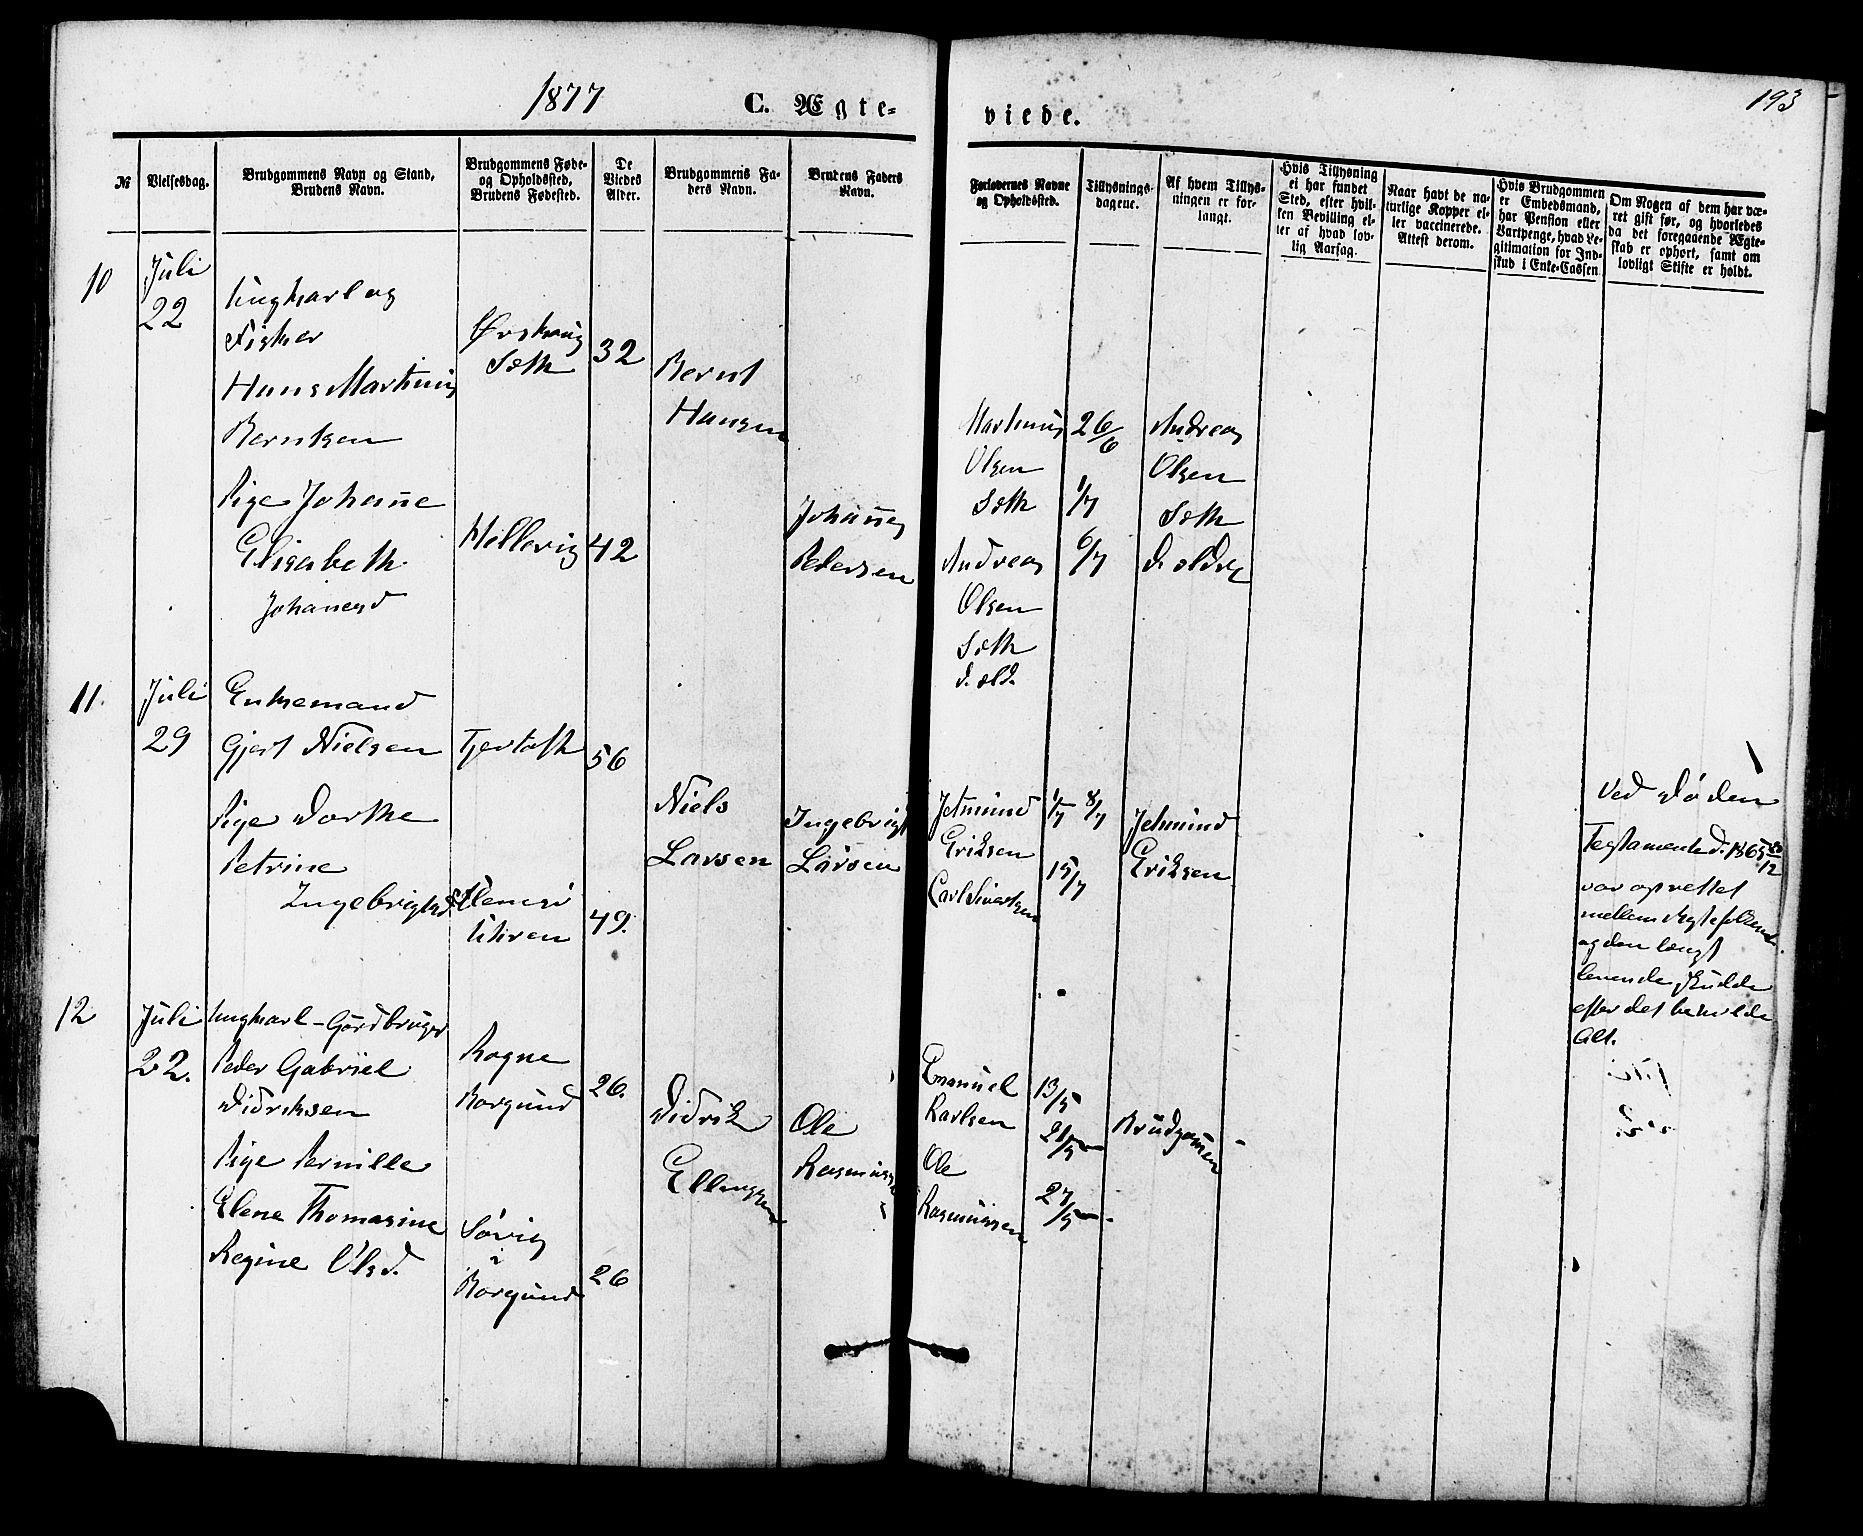 1877 C. Ægte-
viede. 193
№
Vielsesdag.
Brudgommens Navn og Stand,
Brudens Navn.
Brudgommens Føde-
og Opholdssted,
Brudens Fødested.
De
Viedes
Alder.
Brudgommens Fa-
ders Navn.
Brudens Faders
Navn.
Forlovernes Navne
og Opholdssted.
Tillysnings-
dagene.
Af hvem Tillys-
ningen er for-
langt.
Hvis Tillysning
ei har fundet
Sted, efter hvil-
ken Bevilling el-
ler af hvad lov-
lig Aarsag.
Naar havt de na-
turlige Kopper el-
ler vaccinerede.
Attest derom.
Hvis Brudgommen
er Embedsmand,
har Pension eller
Vartpenge, hvad Le-
gitimation for Ind-
skud i Enke-Cassen
Om Nogen af dem har væ-
ret gift før, og hvorledes
da det foregaaende Ægte-
skab er ophørt, samt om
lovligt Skifte er holdt.
10
Juli
22
Ungkarl og
Fisker
Hans Martinus
Berntsen
Pige Johanne
Elisabeth
Johanesd
Ørskoug
Sæth
Hellevig
32
42
Bernt
Hansen
Johannes
Pedersen
Martinus
Olsen
Sæth
Andreas
Olsen
Sæth
d. æld.
26/6
1/7
6/7
Andreas
Olsen
Sæth
d. ældre
11.
Juli
29
Enkemand
Gjert Nielsen
Pige Dorthe
Petrine
Ingebrigtsd
Fjertoft
Uhren
56
49.
Niels
Larsen
Ingebrigt
Larsen
Jetmund
Eriksen
Carl Sivertsen
1/7 8/7
15/7
Jetmund
Eriksen
Ved Døden
Testamente d. 1865
var oprettet
mellem Ægtefolkene
og den længst
levende skulde
efter det beholde
Alt.
12
Juli
22.
Ungkarl - Gårdbruger
Peder Gabriel
Didriksen
Pige Pernille
Elene Thomasine
Regine Olsd.
Rogne
Borgund
Søvig
i
Borgund
26.
26
Didrik
Ellingsen
Ole
Rasmussen
Emanuel
Karlsen
Ole
Rasmussen
13/5
21/5
27/5
Brudgommen